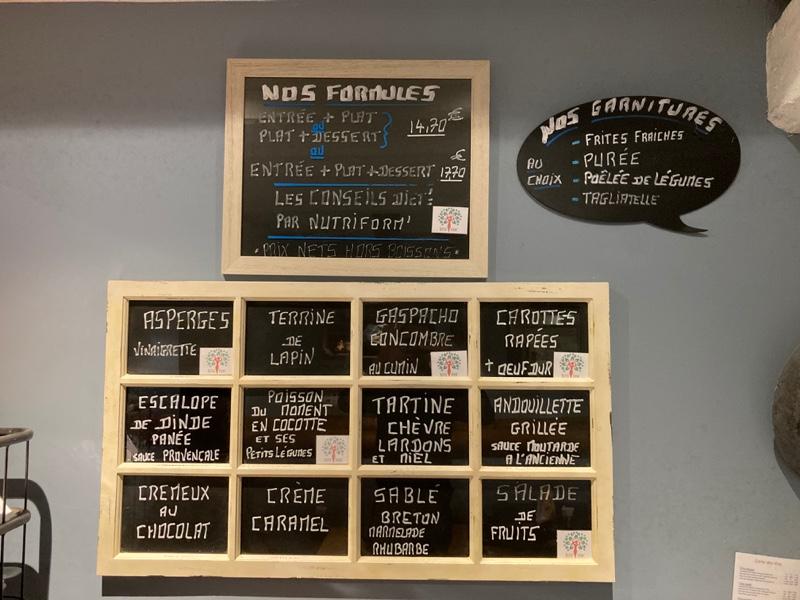 NOS FORMULES
ENTRÉE + PLAT
ou
PLAT + DESSERT
14,70€
ou
ENTRÉE + PLAT + DESSERT 17,70€
LES CONSEILS DIET'
PAR NUTRIFORM'
• PRIX NETS HORS BOISSONS •
NOS GARNITURES
AU CHOIX
- FRITES FRAICHES
- PURÉE
- POÊLÉE DE LÉGUMES
- TAGLIATELLE
ASPERGES
VINAIGRETTE
TERRINE
DE
LAPIN
GASPACHO
CONCOMBRE
AU CUMIN
CAROTTES
RAPÉES
+ OEUF DUR
ESCALOPE
DE DINDE
PANÉE
SAUCE PROVENÇALE
POISSON
DU MOMENT
EN COCOTTE
ET SES
PETITS LÉGUMES
TARTINE
CHÈVRE
LARDONS
ET MIEL
ANDOUILLETTE
GRILLÉE
SAUCE MOUTARDE
A L'ANCIENNE
CRÉMEUX
AU
CHOCOLAT
CRÈME
CARAMEL
SABLÉ
BRETON
MARMELADE
RHUBARBE
SALADE
DE
FRUITS